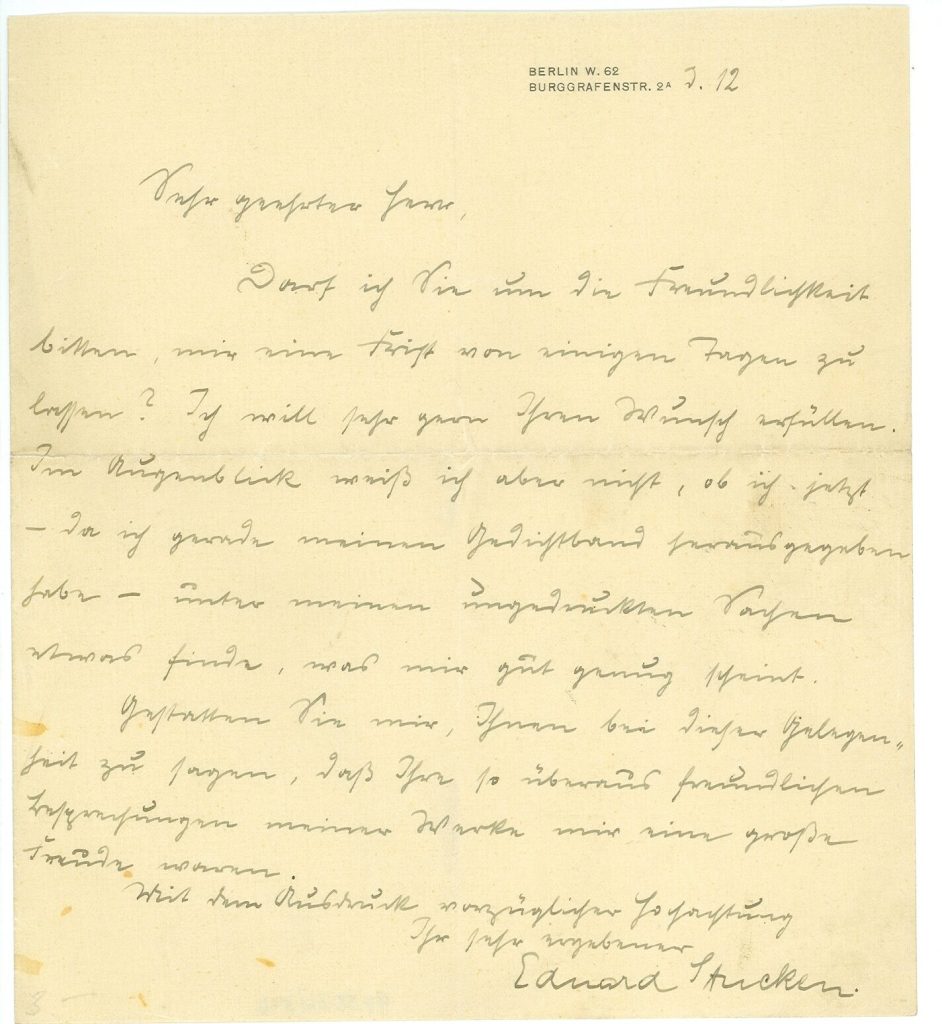 BERLIN W. 62
BURGGRAFENSTR. 2A J. 12
Sehr geehrter Herr,
Darf ich Sie um die Freundlichkeit
bitten, mir eine Frist von einigen Tagen zu
lassen? Ich will sehr gern Ihren Wunsch erfüllen.
Im Augenblick weiß ich aber nicht, ob ich jetzt
– da ich gerade meinen Gedichtband herausgegeben
habe – unter meinen ungedruckten Sachen
etwas finde, was mir gut genug scheint.
Gestatten Sie mir, Ihnen bei dieser Gelegen-
heit zu sagen, daß Ihre so überaus freundlichen
Besprechungen meiner Werke mir eine große
Freude waren.
Mit dem Ausdruck vorzüglicher Hochachtung
Ihr sehr ergebener
Eduard Stucken.